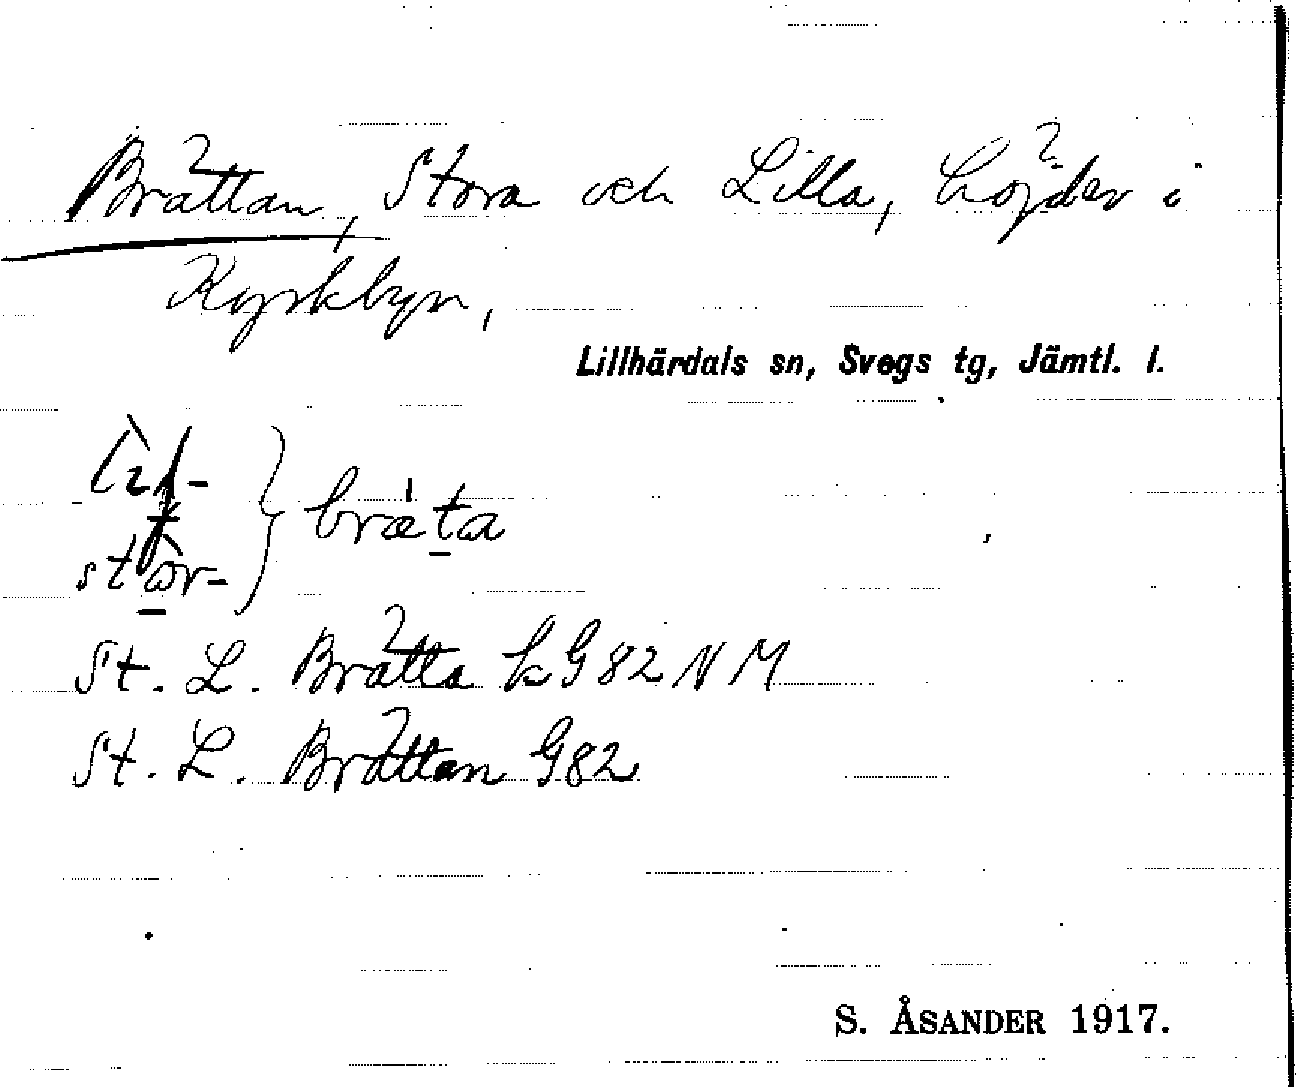 Brättan, Stora och Lilla, höjder i
Kyrkbyn,
Lillhärdals sn, Svegs tg, Jämtl. l.
bræta
stòr-
St. L. Brätta k G82 N M
St. L. Brättan G82
S. ÅSANDER 1917.